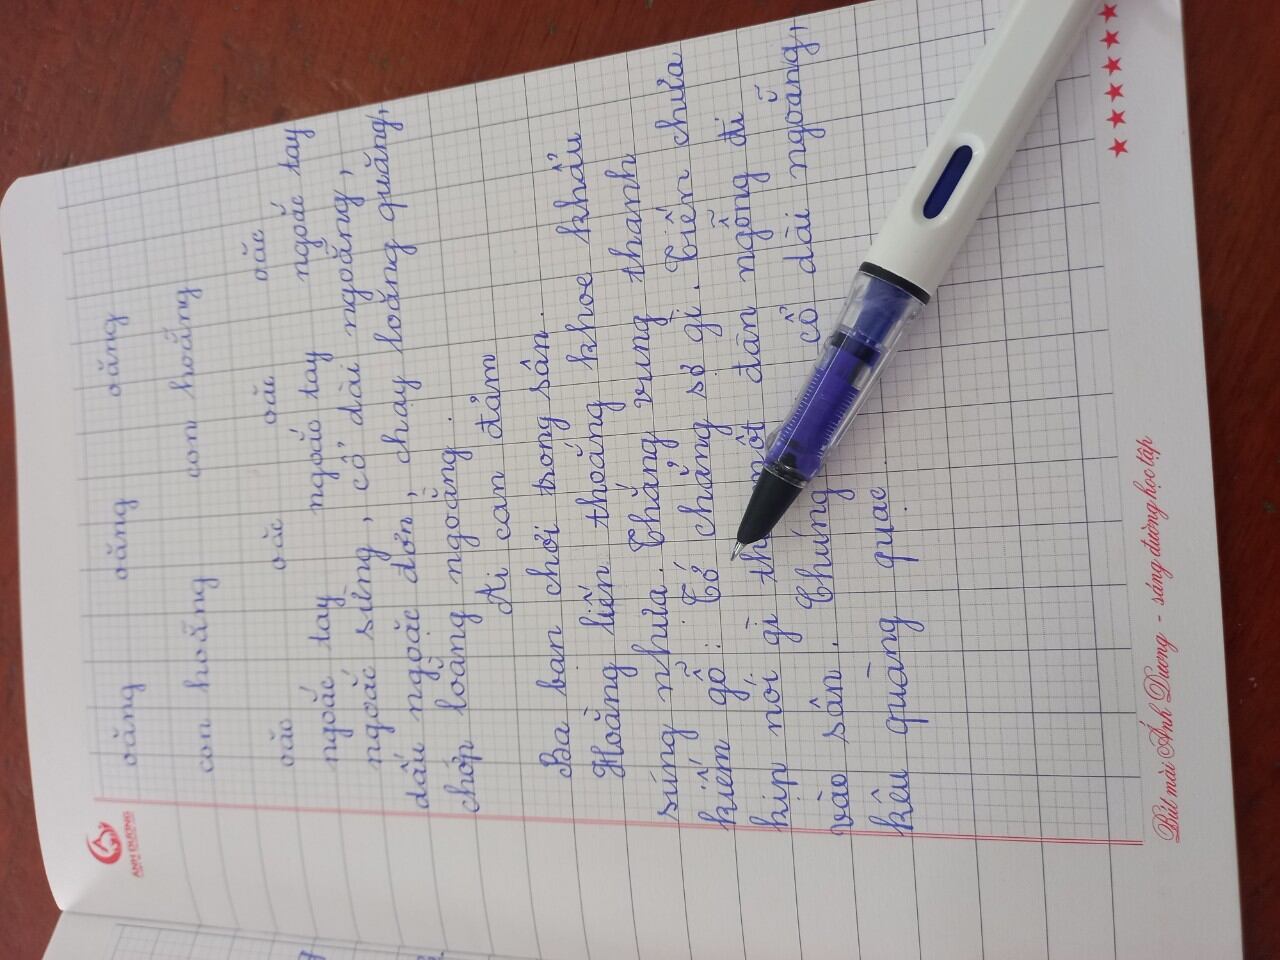 ÁNH DƯƠNG
oăng oăng oăng
con hoẵng con hoẵng
oăc oăc oăc oăc
ngoắc tay ngoắc tay ngoắc tay
ngoắc sừng, cổ dài ngoẵng,
dấu ngoặc đơn, chạy loăng quăng,
chớp loằng ngoằng.
Ai can đảm
Ba bạn chơi trong sân.
Hoằng liến thoắng khoe khẩu
súng nhựa. Thắng vung thanh
kiếm gỗ: Tớ chẳng sợ gì. Tiến chưa
kịp nói gì một đàn ngỗng đi
vào sân. Chúng cổ dài ngoẵng,
kêu quàng quạc.
Bút mài Ánh Dương - sáng đường học tập